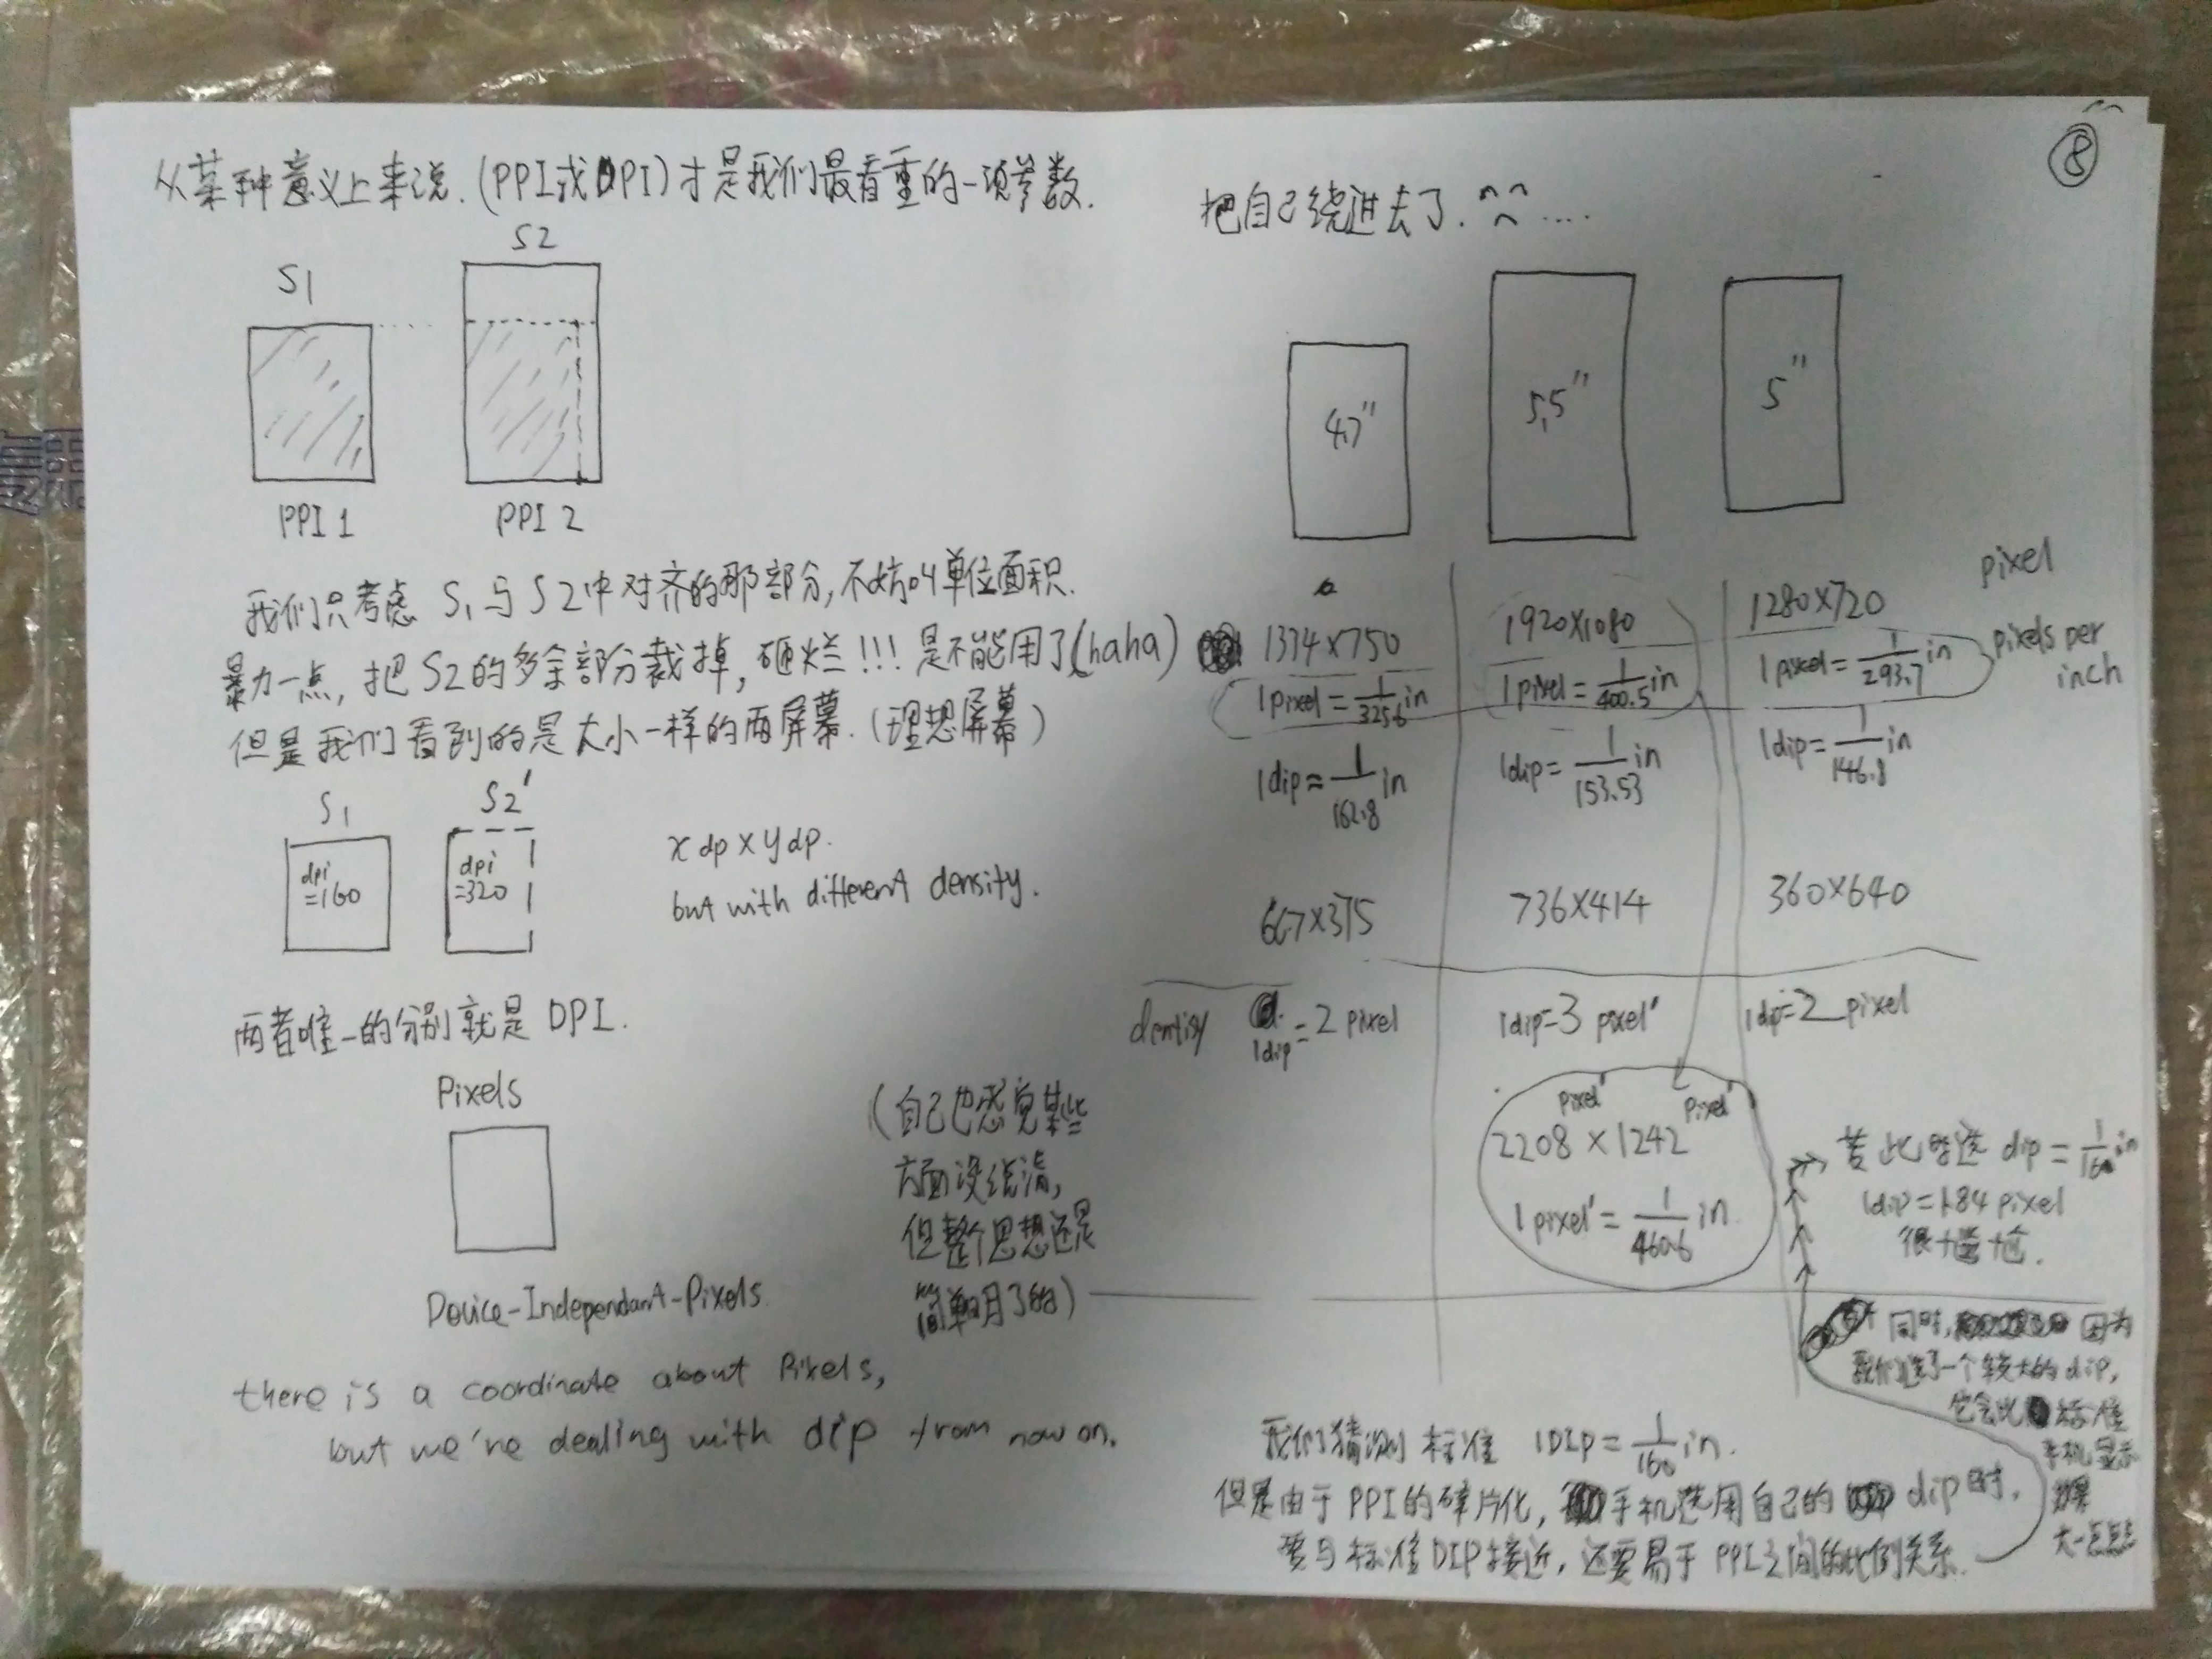 从某种意义上来说.(PPI或DPI)才是我们最看重的一项参数.
S1
S2
PPI 1
PPI 2
我们只考虑 S1与S2中对齐的那部分,不妨叫单位面积.
暴力一点,把S2的多余部分裁掉,砸烂!!!是不能用了(haha)
但是我们看到的是大小一样的两屏幕.(理想屏幕)
S1
S2'
dpi
=160
dpi
=320
x dp x y dp.
but with different density.
两者唯一的分别就是 DPI.
Pixels
Device-Independant-Pixels.
(自己也感觉某些
方面没说清,
但整个思想还是
简单明了的)
there is a coordinate about Pixels,
but we're dealing with dip from now on.
⑧
把自己绕进去了.
4.7"
5.5"
5"
pixel
1334x750
1920x1080
1280x720
pixels per
inch
1 pixel = 1/325.6 in
1 pixel = 1/400.5 in
1 pixel = 1/293.7 in
1 dip ≈ 1/162.8 in
1 dip = 1/153.53 in
1 dip = 1/146.8 in
667x375
736x414
360x640
dentisy
1dip = 2 pixel
1dip=3 pixel'
1dip=2 pixel
pixel'
pixel'
2208 x 1242
1 pixel' = 1/460.6 in.
若此时选 dip = 1/160 in
1dip = 1.84 pixel
很尴尬.
同时, 因为
我们选了一个较大的dip,
它会比标准
手机显示
效果
大一点点
我们猜测 标准 1DIP = 1/160 in.
但是由于PPI的碎片化, 手机选用自己的 dip时,
要与标准DIP接近,还要易于PPI之间的比例关系.